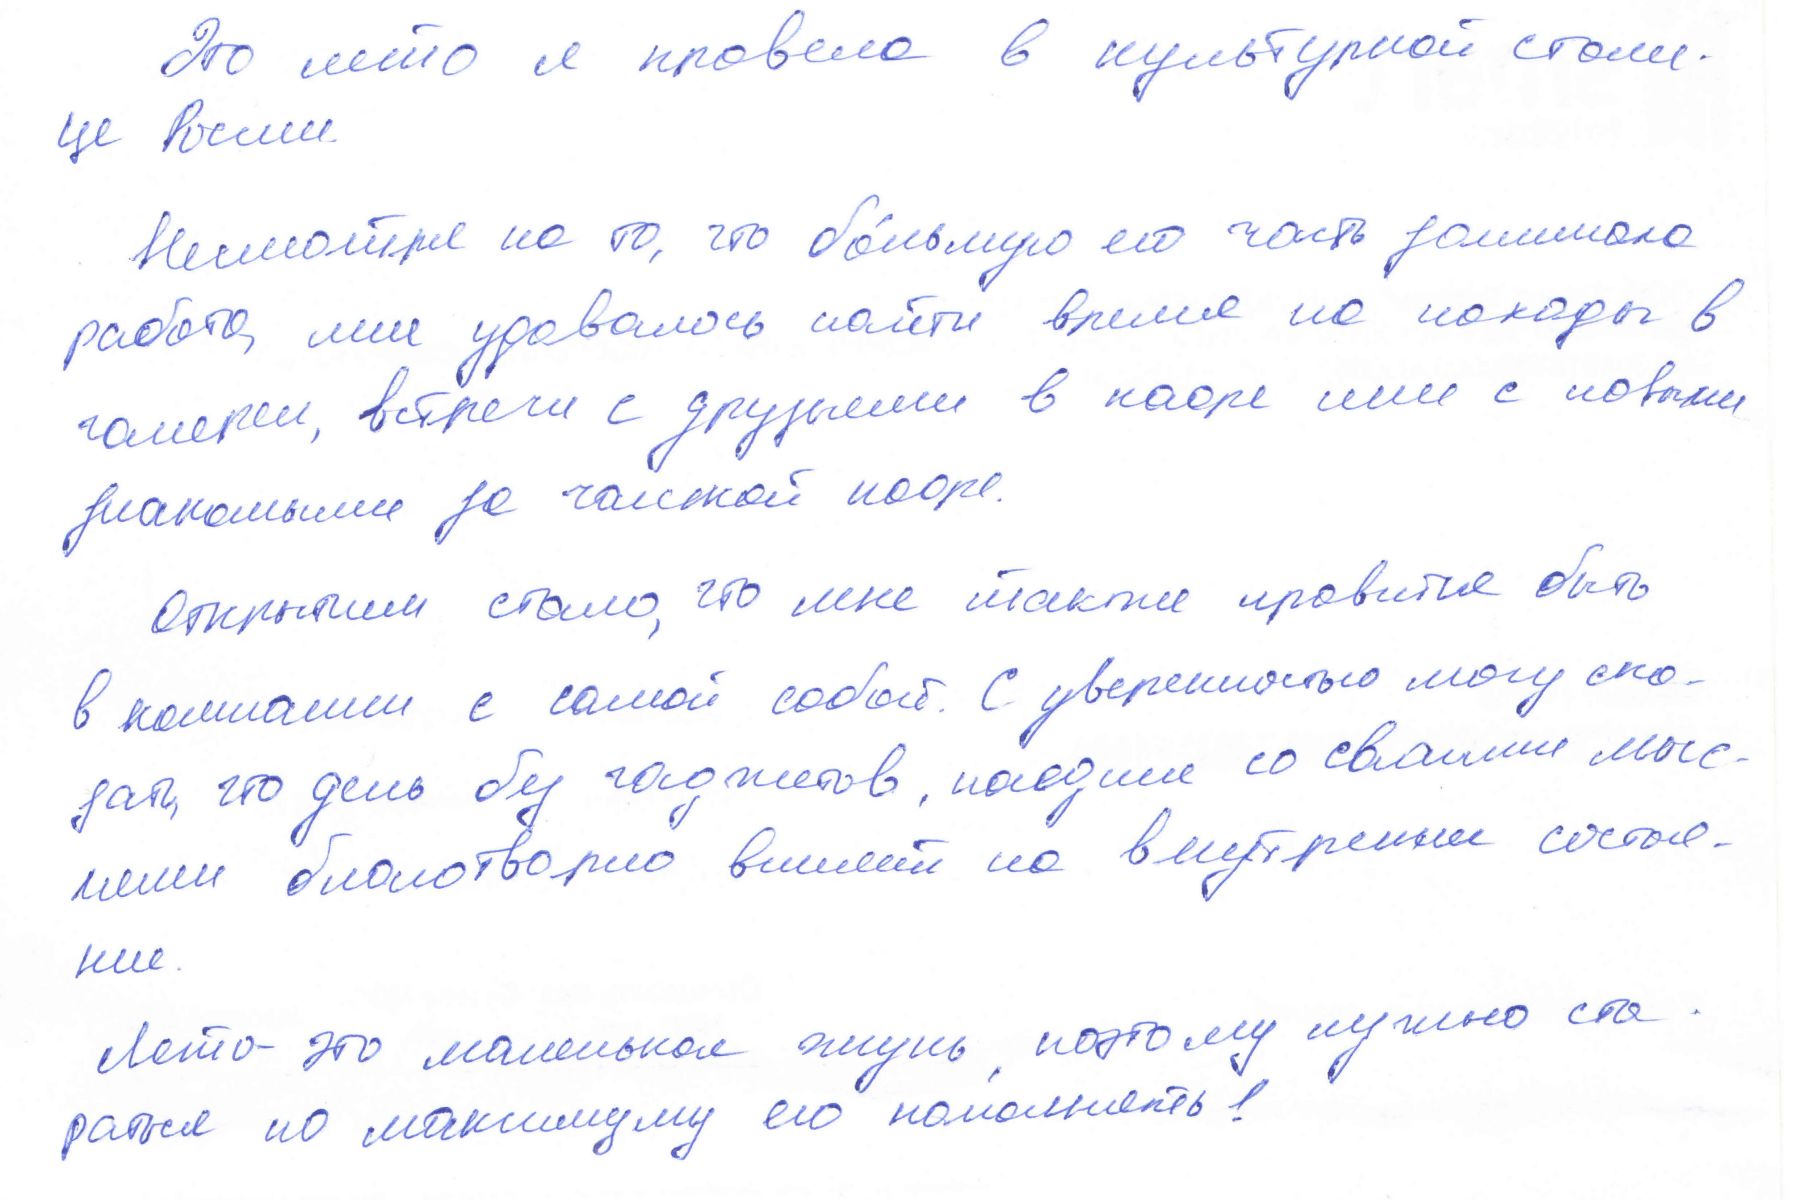 Это лето я провела в культурной столи-
це России.
Несмотря на то, что бо́льшую его часть занимала
работа, мне удавалось найти время на походы в
галереи, встречи с друзьями в кафе или с новыми
знакомыми за чашкой кофе.
Открытием стало, что мне также нравится быть
в компании с самой собой. С уверенностью могу ска-
зать, что день без гаджетов, наедине со своими мыс-
лями благотворно влияет на внутреннее состоя-
ние.
Лето - это маленькая жизнь, поэтому нужно ста-
раться по максимуму его наполнять!